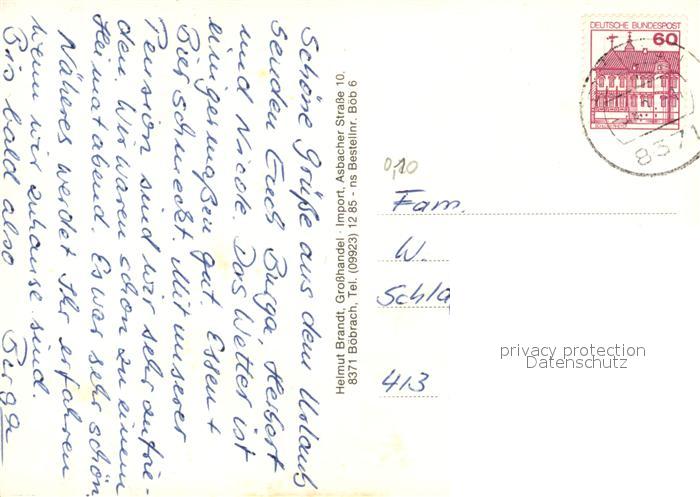 Schöne Grüße aus dem Urlaub
senden Euch Burga Herbert
und Nicole. Das Wetter ist
einigermaßen gut. Essen +
Bier schmeckt. Mit unserer
Pension sind wir sehr zufrie-
den. Wir waren schon zu einem
Heimatabend. Es war sehr schön.
Näheres werdet Ihr erfahren
wenn wir zuhause sind.
Bis bald also
Burga
Helmut Brandt, Großhandel · Import, Asbacher Straße 10,
8371 Böbrach, Tel. (09923) 12 85 - ns Bestellnr. Böb 6
DEUTSCHE BUNDESPOST
60
8371
0,10
Fam.
W.
Schla
413
privacy protection
Datenschutz